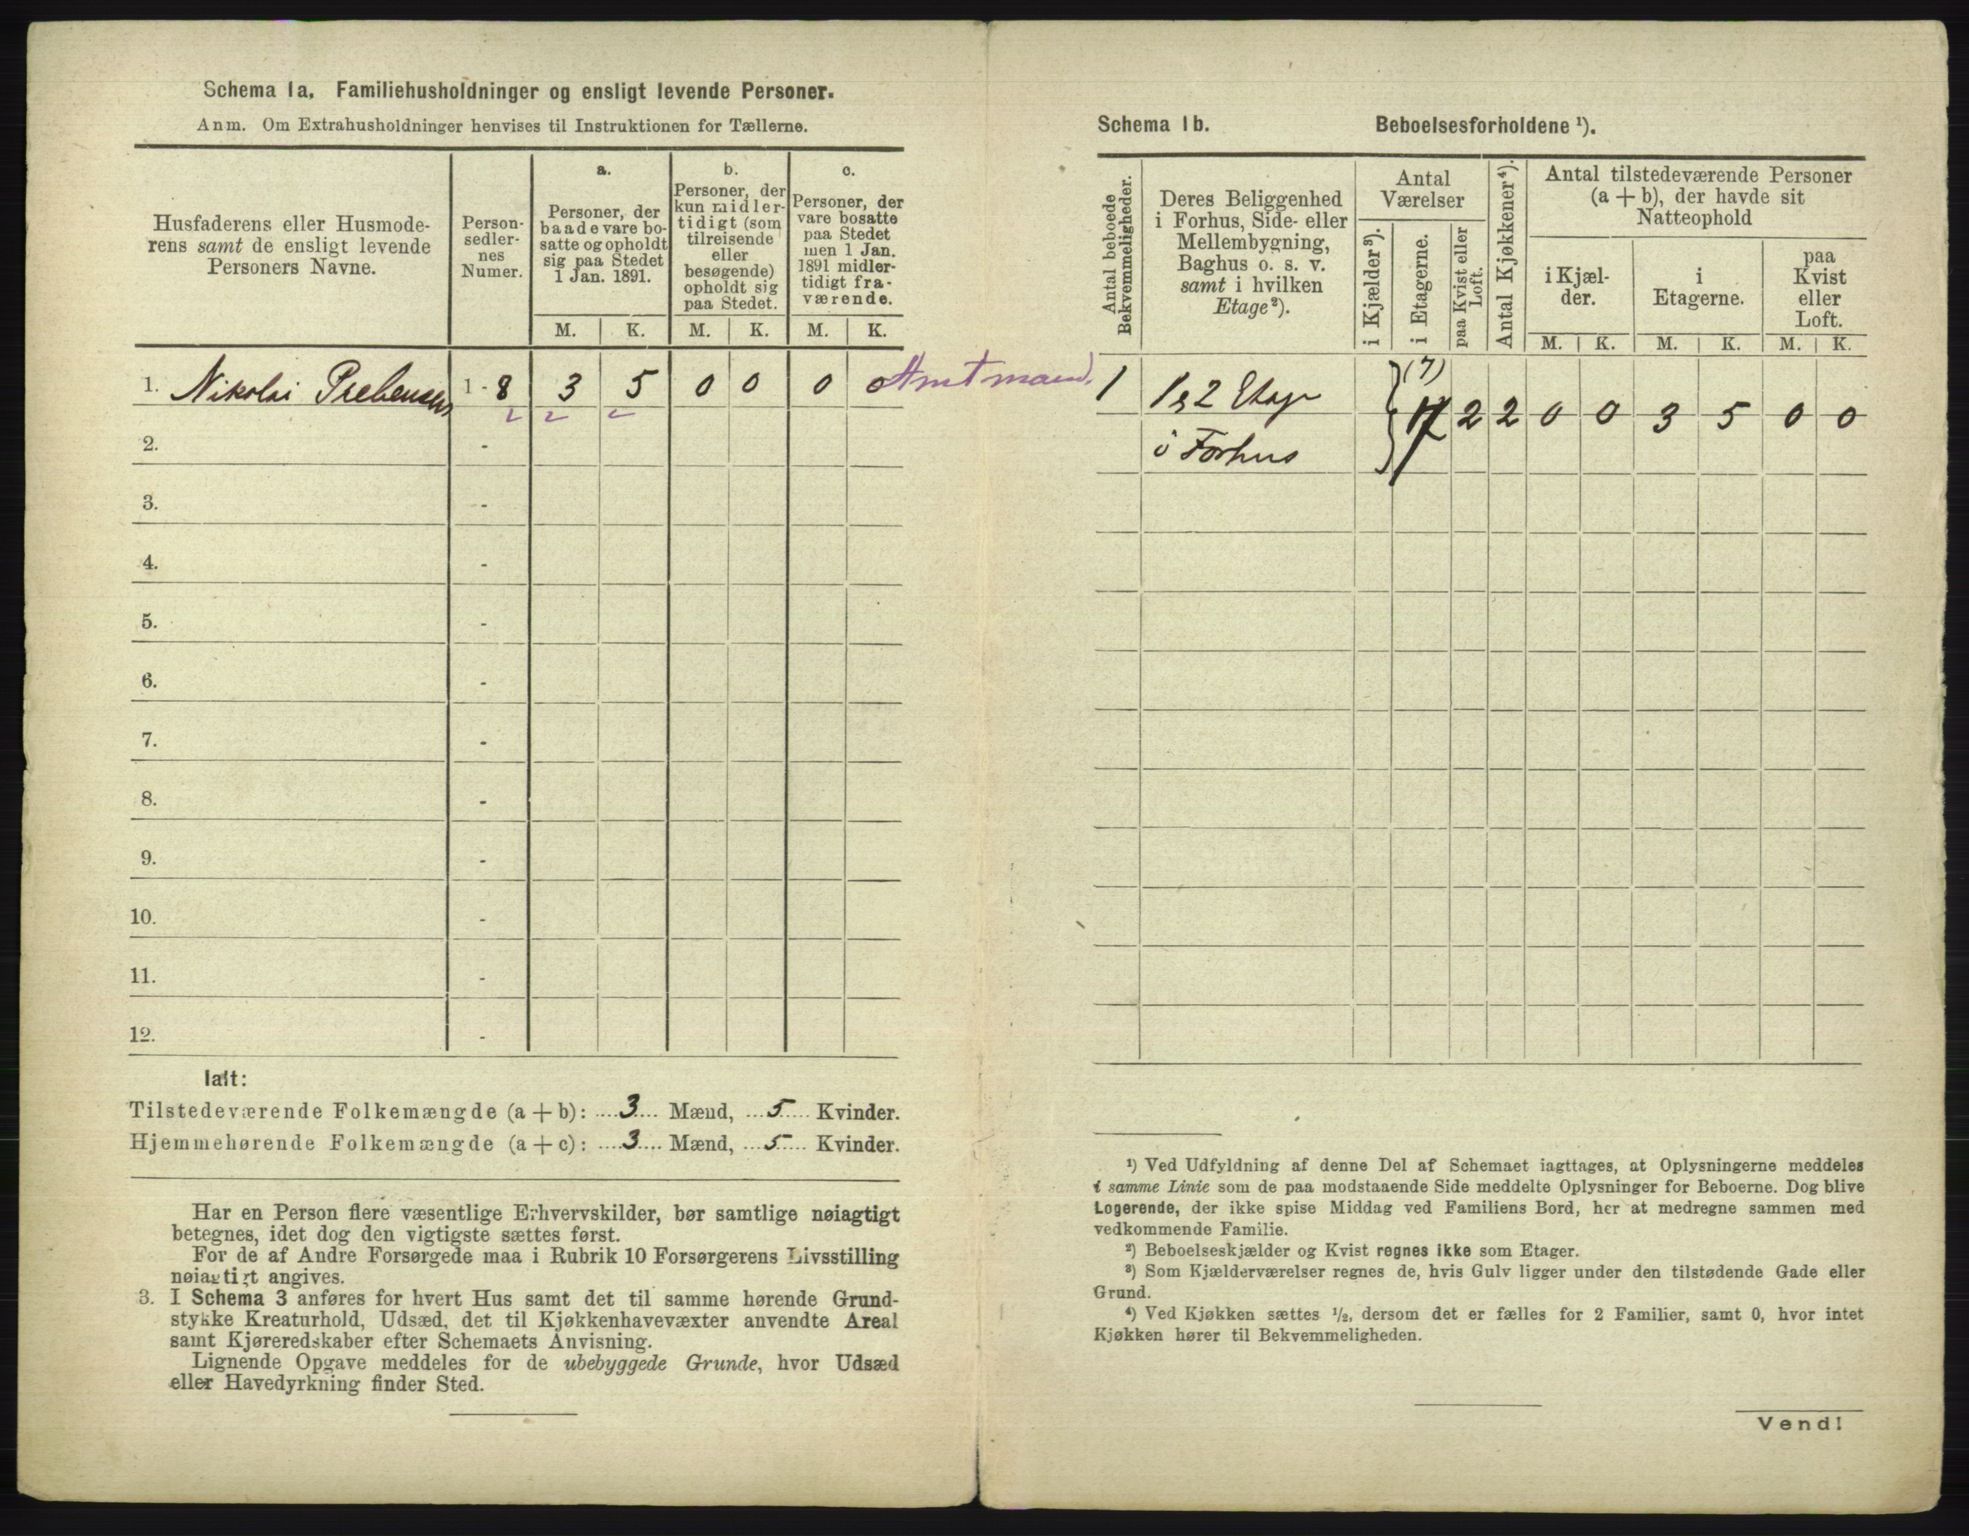 Schema 1a. Familiehusholdninger og ensligt levende Personer.
Anm. Om Extrahusholdninger henvises til Instruktionen for Tællerne.
Husfaderens eller Husmode-
rens samt de ensligt levende
Personers Navne.
Person-
sedler-
nes
Numer.
a.
Personer, der
baade vare bo-
satte og opholdt
sig paa Stedet
1 Jan. 1891.
b.
Personer, der
kun midler-
tidigt (som
tilreisende
eller
besøgende)
opholdt sig
paa Stedet.
c.
Personer, der
vare bosatte
paa Stedet
men 1 Jan.
1891 midler-
tidigt fra-
værende.
M. K. M. K. M. K.
1. Nikolai Prebensen 1 - 8 3 5 0 0 0 0 Amtmand.
2. -
3. -
4. -
5. -
6. -
7. -
8. -
9. -
10. -
11. -
12. -
Ialt:
Tilstedeværende Folkemængde (a + b): 3 Mænd, 5 Kvinder.
Hjemmehørende Folkemængde (a + c): 3 Mænd, 5 Kvinder.
Har en Person flere væsentlige Erhvervskilder, bør samtlige nøiagtigt
betegnes, idet dog den vigtigste sættes først.
For de af Andre Forsørgede maa i Rubrik 10 Forsørgerens Livsstilling
nøiagtigt angives.
3. I Schema 3 anføres for hvert Hus samt det til samme hørende Grund-
stykke Kreaturhold, Udsæd, det til Kjøkkenhavevæxter anvendte Areal
samt Kjøreredskaber efter Schemaets Anvisning.
Lignende Opgave meddeles for de ubebyggede Grunde, hvor Udsæd
eller Havedyrkning finder Sted.
Schema 1b. Beboelsesforholdene ¹).
Antal beboede
Bekvemmeligheder.
Deres Beliggenhed
i Forhus, Side- eller
Mellembygning,
Baghus o. s. v.
samt i hvilken
Etage ²).
Antal
Værelser
i Kjælder ³).
i Etagerne.
paa Kvist eller
Loft.
Antal Kjøkkener ⁴).
Antal tilstedeværende Personer
(a + b), der havde sit
Natteophold
i Kjæl-
der.
i
Etagerne.
paa
Kvist
eller
Loft.
M. K. M. K. M. K.
(7)
1 1 & 2 Etage 17 2 2 0 0 3 5 0 0
i Forhus
¹) Ved Udfyldning af denne Del af Schemaet iagttages, at Oplysningerne meddeles
i samme Linie som de paa modstaaende Side meddelte Oplysninger for Beboerne. Dog blive
Logerende, der ikke spise Middag ved Familiens Bord, her at medregne sammen med
vedkommende Familie.
²) Beboelseskjælder og Kvist regnes ikke som Etager.
³) Som Kjælderværelser regnes de, hvis Gulv ligger under den tilstødende Gade eller
Grund.
⁴) Ved Kjøkken sættes ½, dersom det er fælles for 2 Familier, samt 0, hvor intet
Kjøkken hører til Bekvemmeligheden.
Vend!